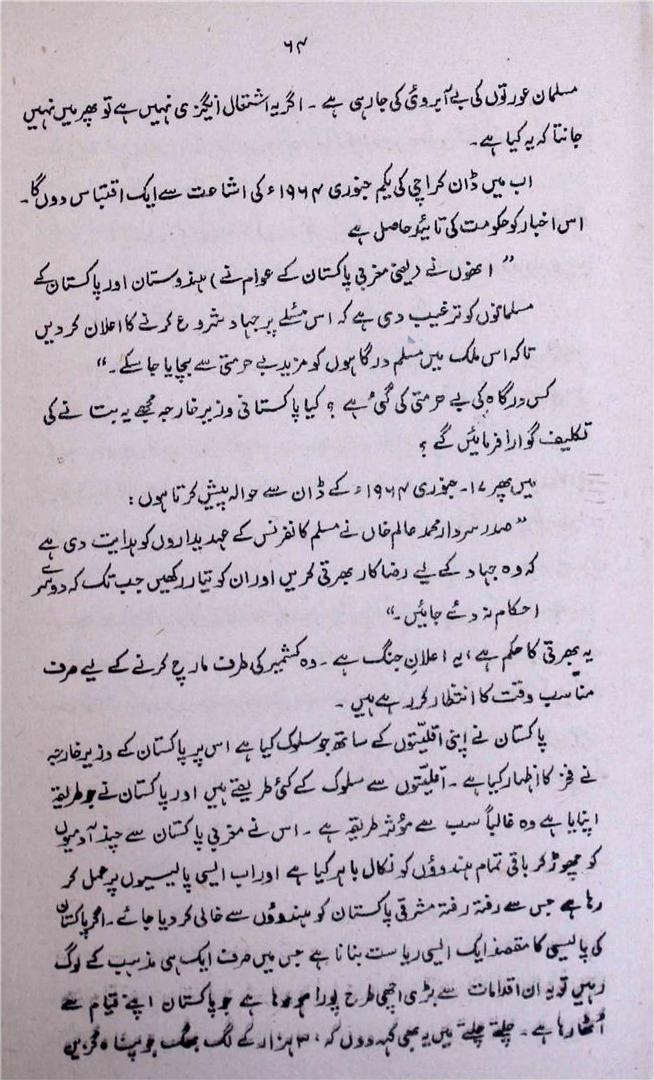 ۶۴
مسلمان عورتوں کی بے آبروئی کی جا رہی ہے ۔ اگر یہ اشتعال انگیزی نہیں ہے تو پھر میں نہیں
جانتا کہ یہ کیا ہے ۔
اب میں ڈان کراچی کی یکم جنوری ۱۹۶۴ء کی اشاعت سے ایک اقتباس دوں گا۔
اس اخبار کو حکومت کی تائید حاصل ہے
” انھوں نے (یعنی مغربی پاکستان کے عوام نے) ہندوستان اور پاکستان کے
مسلمانوں کو ترغیب دی ہے کہ اس مسئلے پر جہاد شروع کرنے کا اعلان کردیں
تاکہ اس ملک میں مسلم درگاہوں کو مزید بے حرمتی سے بچایا جاسکے ۔“
کس درگاہ کی بے حرمتی کی گئی ہے ؟ کیا پاکستانی وزیر خارجہ مجھے یہ بتانے کی
تکلیف گوارا فرمائیں گے ؟
میں پھر ۱۷۔ جنوری ۱۹۶۴ء کے ڈان سے حوالہ پیش کرتا ہوں :
” صدر سردار محمد عالم خاں نے مسلم کانفرنس کے عہدیداروں کو ہدایت دی ہے
کہ وہ جہاد کے لیے رضاکار بھرتی کریں اور ان کو تیار رکھیں جب تک کہ دوسرے
احکام نہ دئے جائیں ۔“
یہ بھرتی کا حکم ہے، یہ اعلانِ جنگ ہے ۔ وہ کشمیر کی طرف مارچ کرنے کے لیے صرف
مناسب وقت کا انتظار کررہے ہیں ۔
پاکستان نے اپنی اقلیّتوں کے ساتھ جو سلوک کیا ہے اس پر پاکستان کے وزیر خارجہ
نے فخر کا اظہار کیا ہے ۔ اقلیّتوں سے سلوک کے کئی طریقے ہیں اور پاکستان نے جو طریقہ
اپنایا ہے وہ غالباً سب سے مؤثر طریقہ ہے ۔ اس نے مغربی پاکستان سے چند آدمیوں
کو چھوڑ کر باقی تمام ہندوؤں کو نکال باہر کیا ہے اور اب ایسی پالیسیوں پر عمل کر
رہا ہے جس سے رفتہ رفتہ مشرقی پاکستان کو ہندوؤں سے خالی کردیا جائے ۔ اگر پاکستان
کی پالیسی کا مقصد ایک ایسی ریاست بنانا ہے جس میں صرف ایک ہی مذہب کے لوگ
رہیں تو یہ ان اقدامات سے بڑی اچھی طرح پورا ہو رہا ہے جو پاکستان اپنے قیام سے
اُٹھا رہا ہے ۔ چلتے چلتے میں یہ بھی کہہ دوں کہ ۳۰ ہزار کے لگ بھگ جو پناہ گزین